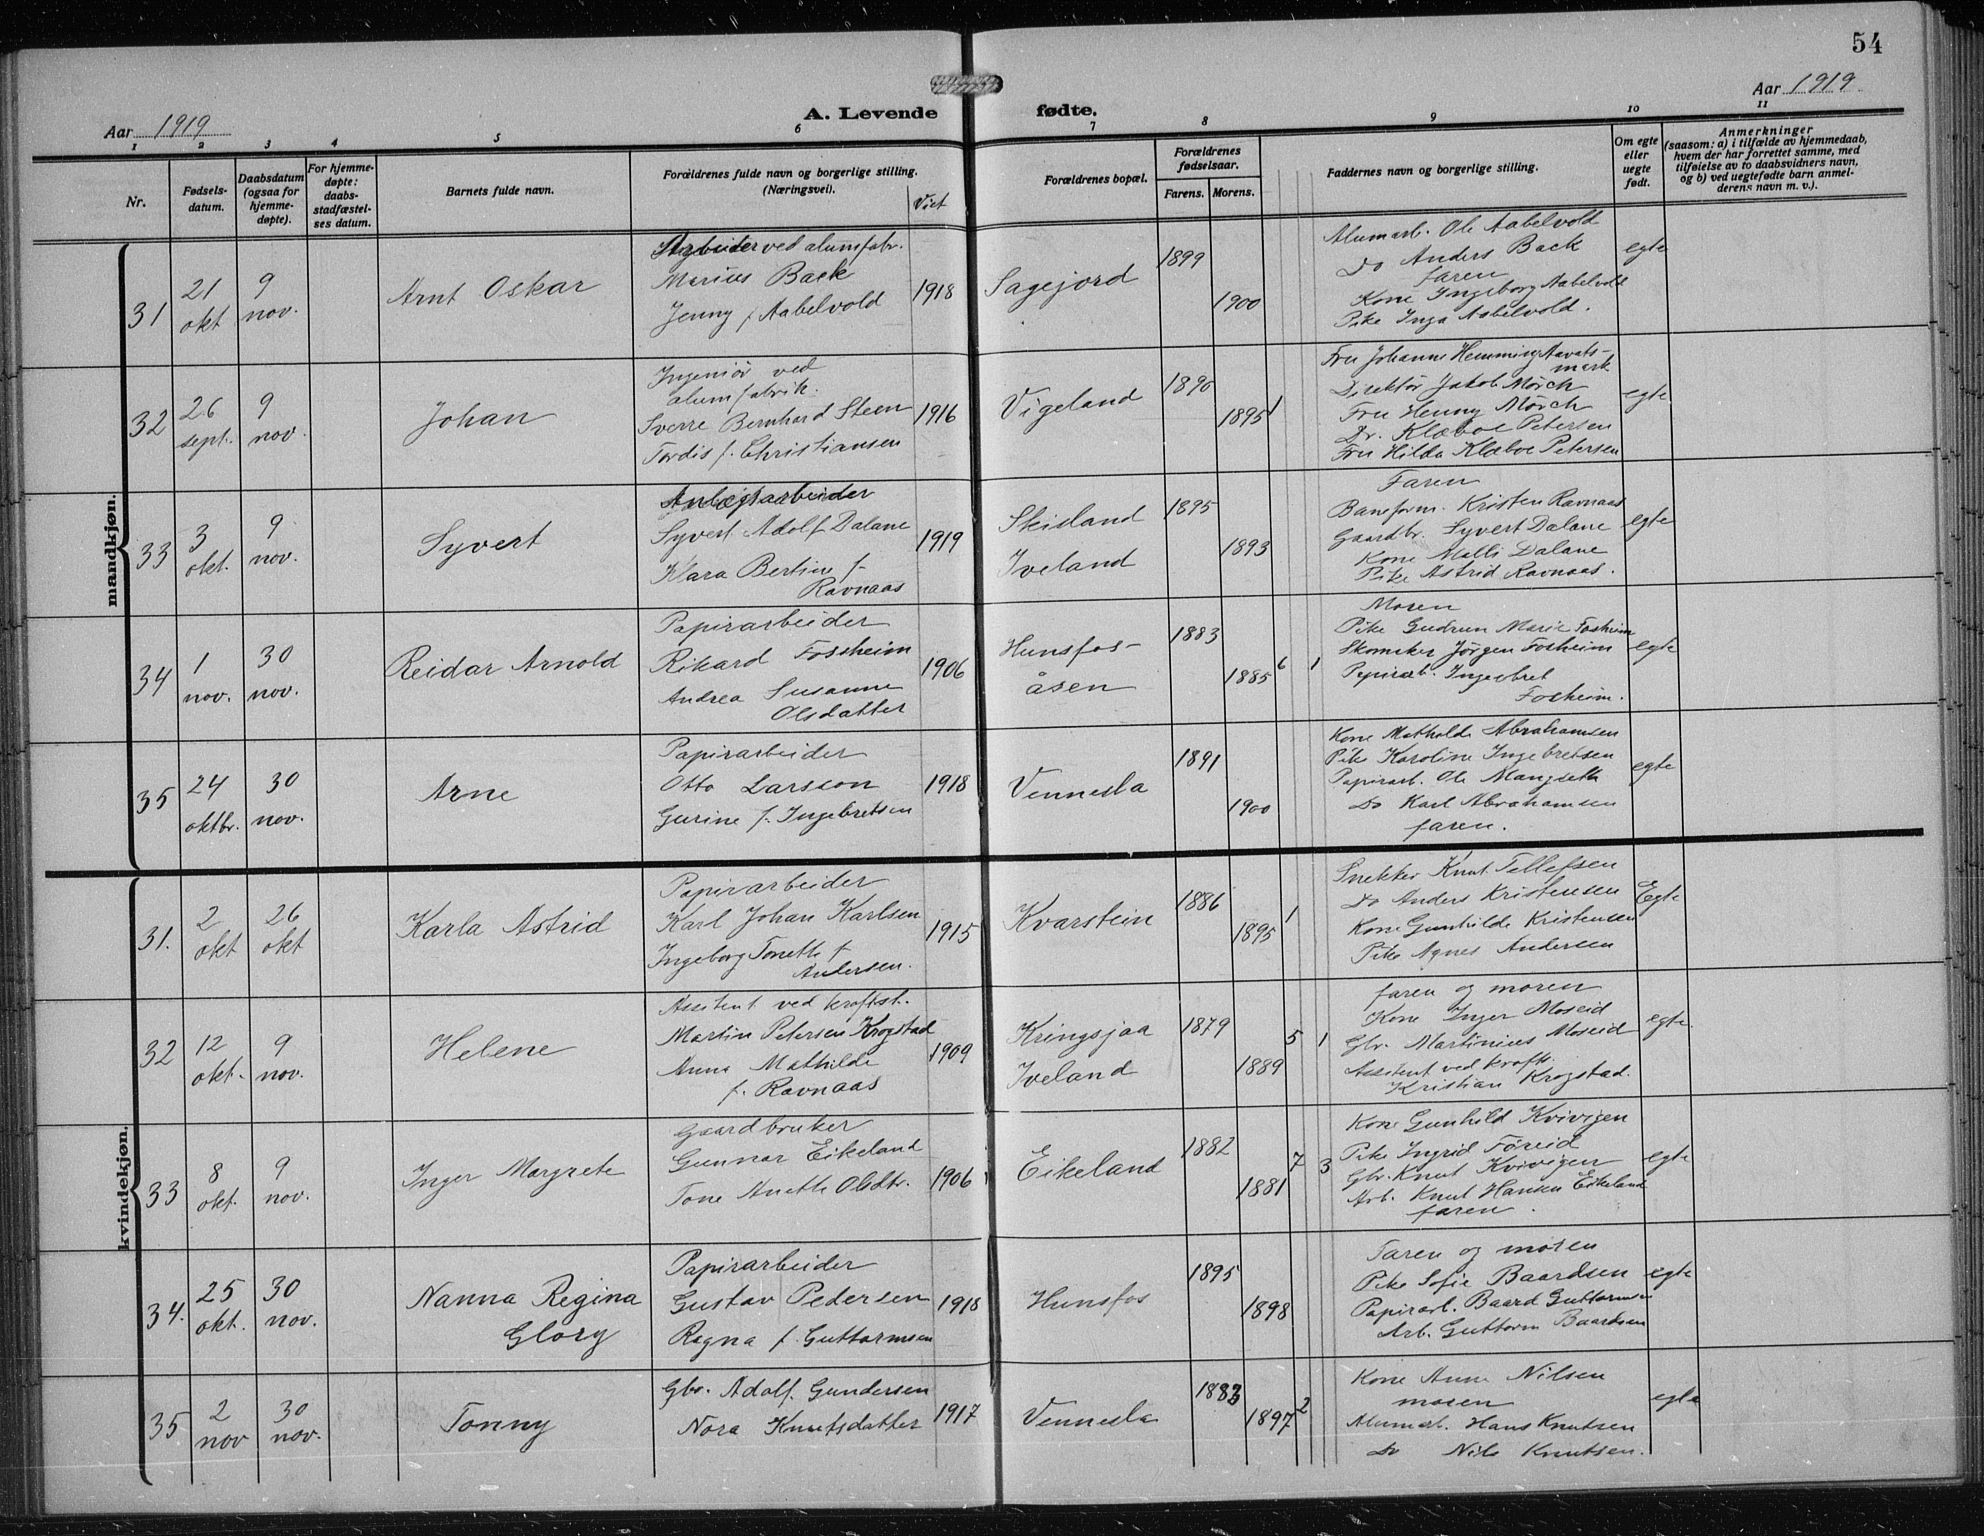 54
Aar 1919
A. Levende fødte.
Aar 1919
1 2 3 4 5 6 7 8 9 10 11
Nr.
Fødsels-
datum.
Daabsdatum
(ogsaa for
hjemme-
døpte).
For hjemme-
døpte:
daabs-
stadfæstel-
ses datum.
Barnets fulde navn.
Forældrenes fulde navn og borgerlige stilling.
(Næringsvei).
Viet
Forældrenes bopæl.
Forældrenes
fødselsaar.
Farens. Morens.
Faddernes navn og borgerlige stilling.
Om egte
eller
uegte
født.
Anmerkninger
(saasom: a) i tilfælde av hjemmedaab,
hvem der har forrettet samme, med
tilføielse av to daabsvidners navn,
og b) ved uegtefødte barn anmel-
derens navn m. v.).
mandkjøn.
31
21
okt
9
nov.
Arnt Oskar
Arbeider ved alumfabr.
Marius Back
Jenny f Aabelvold
1918
Sagejord
1899
1900
Alumarb. Ole Aabelvold
Do Anders Back
faren
Kone Ingeborg Aabelvold
Pike Inga Aabelvold.
egte
32
26
sept.
9
nov.
Johan
Ingeniør ved
alumfabrik.
Sverre Bernhard Steen
Tordis f. Christiansen
1916
Vigeland
1890
1895
1
Fru Johanne Hemming Aavats-
mark
Direktør Jakob Mørch
Fru Henny Mørch
Dr. Klæboe Petersen
Fru Hilda Klæboe Petersen
egte
33
3
okt.
9
nov.
Syvert
Anlægsarbeider
Syvert Adolf Dalane
Klara Bertine f
Ravnaas
1919
Skisland
Iveland
1895
1893
Faren
Baneform. Kristen Ravnaas
Gaardbr. Syvert Dalane
Kone Malli Dalane
Pike Astrid Ravnaas.
egte
34
1
nov.
30
nov.
Reidar Arnold
Papirarbeider
Rikard Fossheim
Andrea Susanne
Olsdatter
1906
Hunsfos-
åsen
1883
1885
6 1
Moren
Pike Gudrun Marie Fosheim
Skomaker Jörgen Fosheim
Papirarb. Ingebret
Fosheim.
egte
35
24
oktbr.
30
nov.
Arne
Papirarbeider
Otto Larsson
Gurine f. Ingebretsen
1918
Vennesla
1891
1900
Kone Mathilde Abrahamsen
Pike Karoline Ingebretsen
Papirarb. Ole Mangseth
Do Karl Abrahamsen
faren.
egte
kvindekjøn.
31.
2
okt
26
okt
Karla Astrid
Papirarbeider
Karl Johan Karlsen
Ingeborg Tonette f
Andersen.
1915
Kvarstein
1886
1895
1
Snekker Knut Tellefsen
Do Anders Kristensen
Kone Gunhilde Kristensen
Pike Agnes Andersen
Egte
32
12
okt.
9
nov.
Helene
Assitent ved kraftst.
Martin Petersen Krogstad
Anna Mathilde
f. Ravnaas
1909
Kringsjaa
Iveland
1879
1889
5 1
faren og moren
Kone Inger Moseid
Gbr. Martinius Moseid
Assitent ved krafts.
Kristian Krogstad.
egte.
33
8
okt.
9
nov.
Inger Margrete
Gaardbruker
Gunnar Eikeland
Tone Anette Olsdtr.
1906
Eikeland
1882
1881
7 3
Kone Gunhild Kvivigen
Pike Ingrid Föreid
Gbr. Knut Kvivigen
Arb. Knut Hansen Eikeland
faren.
egte
34.
25
okt.
30
nov.
Nanna Regina
Glory
Papirarbeider
Gustav Pedersen
Ragna f. Guttormsen
1918
Hunsfos
1895
1898
Faren og moren
Pike Sofie Baardsen
Papirarb. Baard Guttormsen
Arb. Guttorm Baardsen
egte
35
2
nov
30
nov.
Tonny
Gbr. Adolf Gundersen
Nora Knutsdatter
1917
Vennesla
1883
1897
2
Kone Anne Nilsen
moren
Alumarb. Hans Knutsen
Do Nils Knutsen.
egte